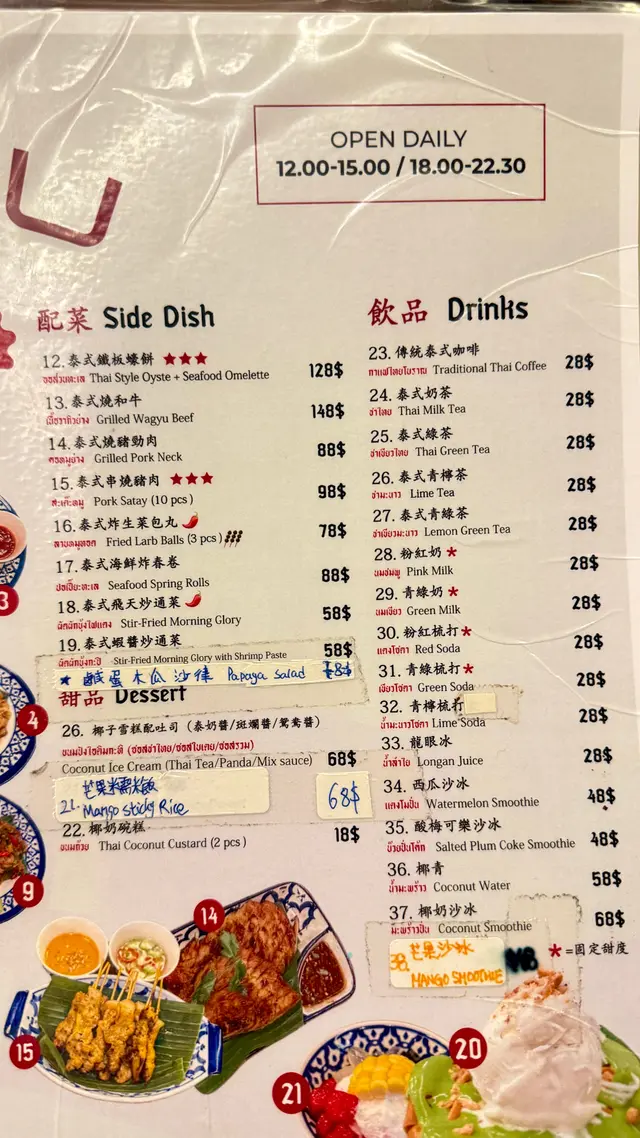 OPEN DAILY
12.00-15.00 / 18.00-22.30
配菜 Side Dish
12. 泰式鐵板蠔餅 ★★★
ออส่วนทะเล Thai Style Oyste + Seafood Omelette 128$
13. 泰式燒和牛
เนื้อวากิวย่าง Grilled Wagyu Beef 148$
14. 泰式燒豬勁肉
คอหมูย่าง Grilled Pork Neck 88$
15. 泰式串燒豬肉 ★★★
สะเต๊ะหมู Pork Satay (10 pcs) 98$
16. 泰式炸生菜包丸
ลาบหมูทอด Fried Larb Balls (3 pcs) 78$
17. 泰式海鮮炸春卷
ปอเปี๊ยะทะเล Seafood Spring Rolls 88$
18. 泰式飛天炒通菜
ผัดผักบุ้งไฟแดง Stir-Fried Morning Glory 58$
19. 泰式蝦醬炒通菜
ผัดผักบุ้งกะปิ Stir-Fried Morning Glory with Shrimp Paste 58$
★ 鹹蛋木瓜沙律 Papaya Salad
甜品 Dessert
26. 椰子雪糕配吐司 (泰奶醬/斑斕醬/鴛鴦醬)
ขนมปังไอติมกะทิ (ซอสชาไทย/ซอสใบเตย/ซอสรวม)
Coconut Ice Cream (Thai Tea/Panda/Mix sauce) 68$
芒果糯米飯
21. Mango Sticky Rice 68$
22. 椰奶碗糕
ขนมถ้วย Thai Coconut Custard (2 pcs) 18$
飲品 Drinks
23. 傳統泰式咖啡
กาแฟไทยโบราณ Traditional Thai Coffee 28$
24. 泰式奶茶
ชาไทย Thai Milk Tea 28$
25. 泰式綠茶
ชาเขียวไทย Thai Green Tea 28$
26. 泰式青檸茶
ชามะนาว Lime Tea 28$
27. 泰式青綠茶
ชาเขียวมะนาว Lemon Green Tea 28$
28. 粉紅奶 *
นมชมพู Pink Milk 28$
29. 青綠奶 *
นมเขียว Green Milk 28$
30. 粉紅梳打 *
แดงโซดา Red Soda 28$
31. 青綠梳打 *
เขียวโซดา Green Soda 28$
32. 青檸梳打
น้ำมะนาวโซดา Lime Soda 28$
33. 龍眼冰
น้ำลำไย Longan Juice 28$
34. 西瓜沙冰
แตงโมปั่น Watermelon Smoothie 48$
35. 酸梅可樂沙冰
บ๊วยปั่นโค้ก Salted Plum Coke Smoothie 48$
36. 椰青
น้ำมะพร้าว Coconut Water 58$
37. 椰奶沙冰
มะพร้าวปั่น Coconut Smoothie 68$
芒果沙冰
38. MANGO SMOOTHIE
* =固定甜度
3
4
9
14
15
20
21